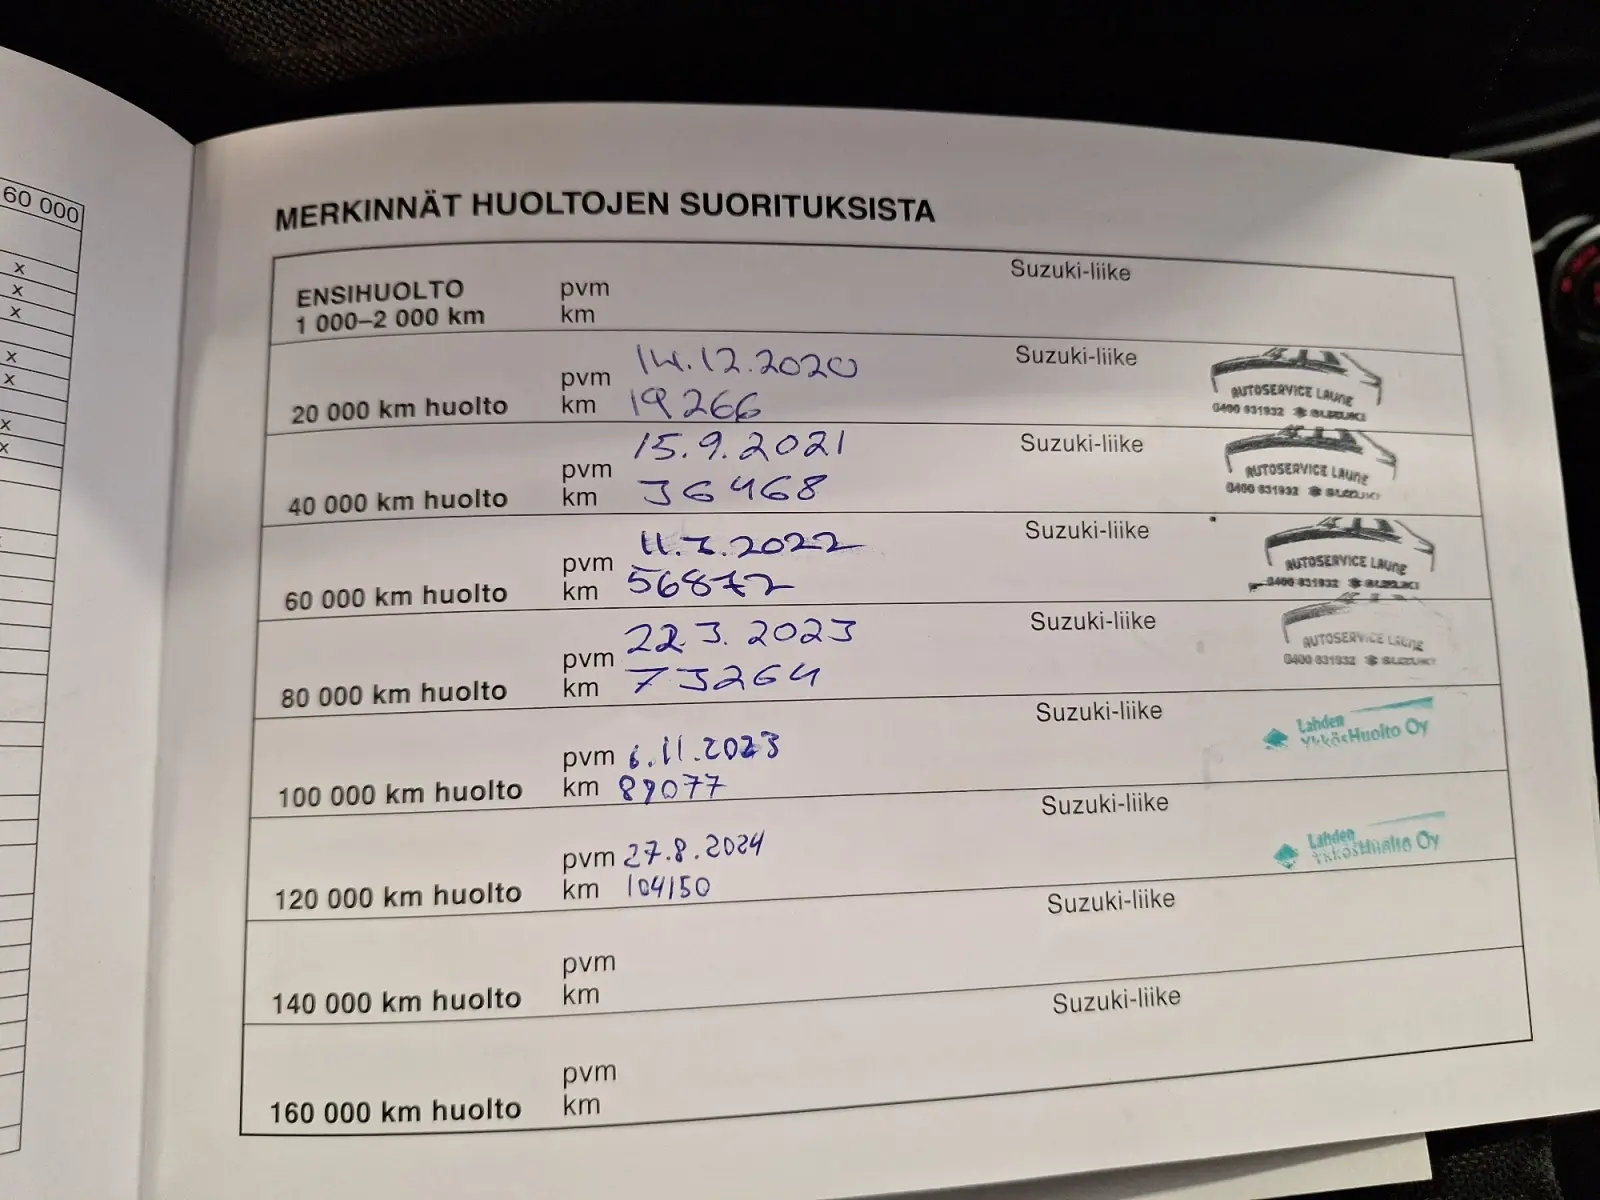 60 000
x
x
x
x
x
x
x
MERKINNÄT HUOLTOJEN SUORITUKSISTA
ENSIHUOLTO
1 000–2 000 km
pvm
km
Suzuki-liike
20 000 km huolto
pvm 14.12.2020
km 19266
Suzuki-liike
AUTOSERVICE LAUNE
0400 831932 SUZUKI
40 000 km huolto
pvm 15.9.2021
km 36468
Suzuki-liike
AUTOSERVICE LAUNE
0400 831932 SUZUKI
60 000 km huolto
pvm 11.7.2022
km 56872
Suzuki-liike
AUTOSERVICE LAUNE
0400 831932 SUZUKI
80 000 km huolto
pvm 22.3.2023
km 73264
Suzuki-liike
AUTOSERVICE LAUNE
0400 831932 SUZUKI
100 000 km huolto
pvm 6.11.2023
km 89077
Suzuki-liike
Lahden
YkkösHuolto Oy
120 000 km huolto
pvm 27.8.2024
km 104150
Suzuki-liike
Lahden
YkkösHuolto Oy
140 000 km huolto
pvm
km
Suzuki-liike
160 000 km huolto
pvm
km
Suzuki-liike